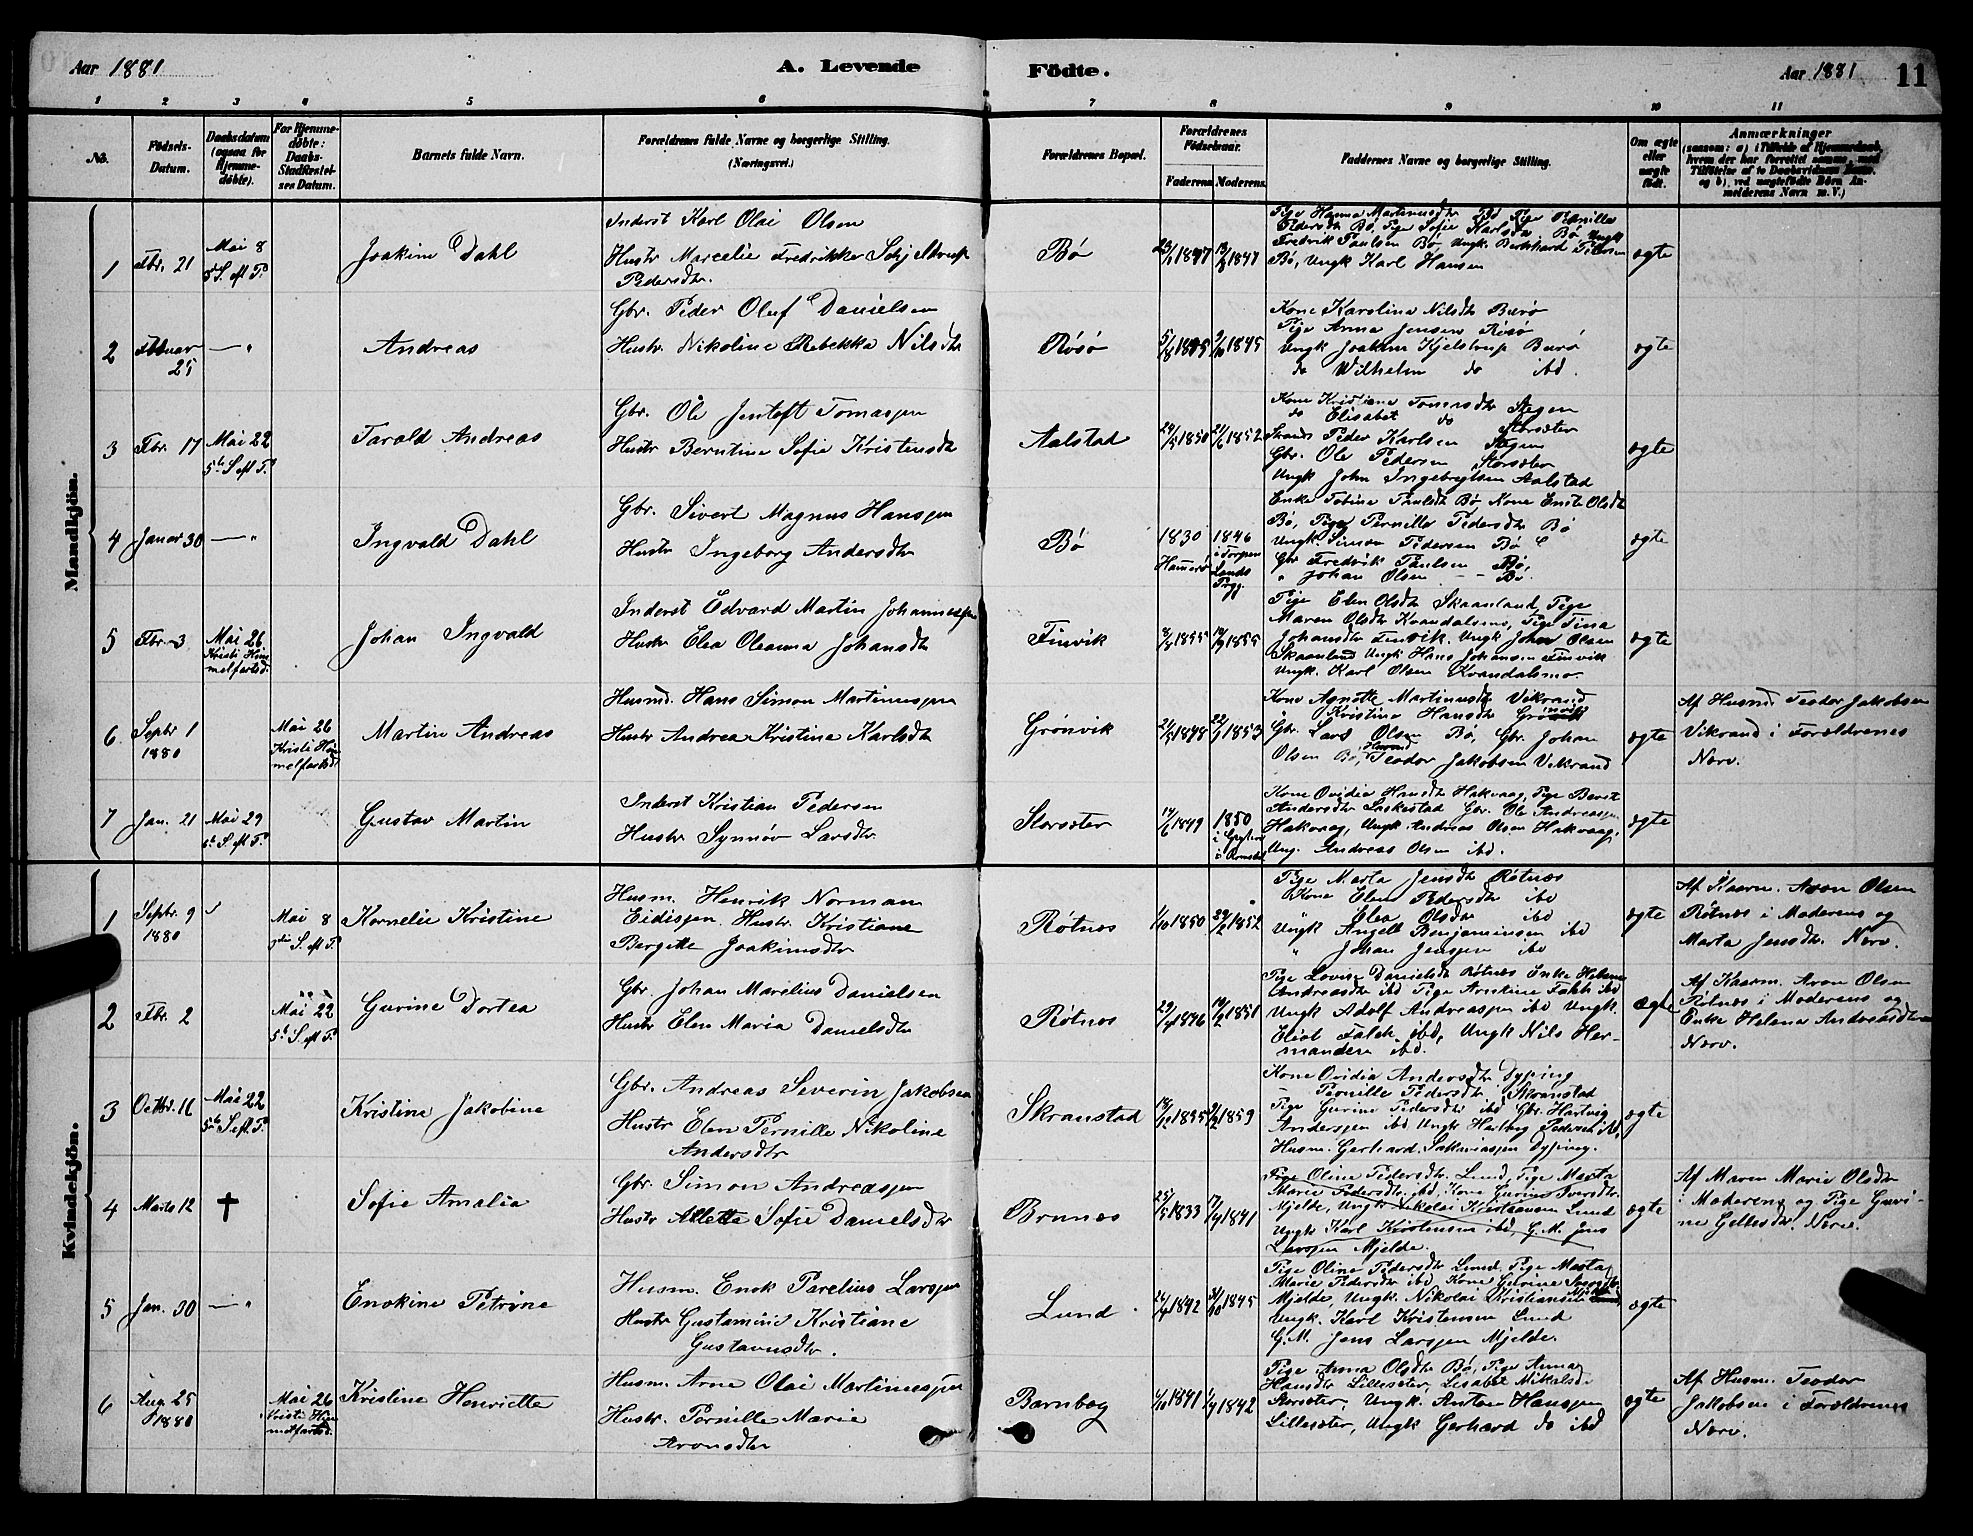 Aar 1881
A. Levende
Födte.
Aar 1881
11
1 2 3 4 5 6 7 8 9 10 11
No.
Födsels-Datum.
Daabsdatum (ogsaa for Hjemmedöbte).
For Hjemmedöbte: Daabs-Stadfæstelses Datum.
Barnets fulde Navn.
Forældrenes fulde Navne og borgerlige Stilling.
(Næringsvei.)
Forældrenes Bopæl.
Forældrenes Födselsaar.
Faderens. Moderens.
Faddernes Navne og borgerlige Stilling.
Om ægte eller uægte födt.
Anmærkninger
(saasom: a) i Tilfælde af Hjemmedaab, hvem der har forrettet samme, med Tilföielse af to Daabsvidners Navne, og b) ved uægtefödte Börn Anmelderens Navn m. V.)
Mandkjön.
1 Fbr. 21
Mai 8
5 S. eft P.
Joakim Dahl
Inderst Karl Olai Olsen
Hustr Marcelie Fredrikke Schjeldrup
Pedersdtr.
Bø
1847
1847
Pige Hanna Martinusdtr Bø Pige Pernille
Pedersdtr Bø, Pige Sofie Karlsdtr Bø Ungk
Fredrik Paulsen Bø, Ungk. Bernhard Pedersen
Bø, Ungk Karl Hansen
ægte
2 Februar
25
— "
Andreas
Gbr. Peder Oluf Danielsen
Hustr Nikoline Rebekka Nilsdtr
Røsø
1845
Kone Karolina Nilsdtr Barø
Pige Anna Jensen Røsø
Ungk Joakim Kjelstrup Barø
do Wilhelm do ibd.
ægte
3 Fbr. 17
Mai 22
5te S. eft P.
Tarald Andreas
Gbr. Ole Jentoft Tomassen
Hustr Berntine Sofie Kristensdtr
Aalstad
24/5 1850
21/6 1852
Kone Kristiane Tomasdtr Stegen
do Elisabet do Storsæter
Peder Karlsen Stegen
Gbr. Ole Pedersen Storsæter
Ungk John Ingebrigtsen Aalstad
ægte
4 Januar 30
— "
Ingvald Dahl
Gbr. Sivert Magnus Hanssen
Hustr Ingeborg Andersdtr
Bø
1830
Hamerø
1846
i Torpen
Lands
Prgj.
Enke Tobine Paulsdtr Bø, Kone Olsdtr
Bø, Pige Pernille Pedersdtr Bø
Ungk. Simon Pedersen Bø
Gbr Fredrik Paulsen Bø,
" Johan Olsen — Bø
ægte
5 Fbr. 3
Mai 26
Kristi Him
melfartsd.
Johan Ingvald
Inderst Edvard Martin Johannessen
Hustr Elea Oleanna Johansdtr
Finvik
1855
1855
Pige Elen Olsdtr Skaanland, Pige
Maren Olsdtr Kvandalsmo, Pige Tina
Johansdtr Finvik, Ungk Johan Olsen
Skaanland Ungk Hans Johansen Finvik
Ungk. Karl Olsen Kvandalsmo.
ægte
6 Septr 1
1880
Mai 26
Kristi Him
melfartsd.
Martin Andreas
Husmd. Hans Simon Martinussen
Hustr Andrea Kristine Karlsdtr
Grønvik
1848
1853
Kone Agnette Martinusdtr Vikrand
Kristine Hansdtr
Gbr. Lars Olsen Bø, Gbr. Johan
Olsen Bø, Teodor Jakobsen Vikrand
ægte
Af Husmd Teodor Jakobsen
Vikrand i Forældrenes
Nærv.
7 Jan. 21
Mai 29
6te S. eft P.
Gustav Martin
Inderst Kristian Pedersen
Hustr Synnøv Larsdtr
Storsæter
17/6 1849
1850
Kone Ovidia Hansdtr Hakvaag, Pige Berit
Andersdtr Laskestad Gbr. Ole Andreassen
Hakvaag, Ungk. Andreas Olsen Hakvaag,
Ung. Andreas Olsen ibd.
ægte
Kvindekjön.
1 Septbr. 9
1880
Mai 8
S. eft P.
Kornelie Kristine
Husm. Henrik Norman
Eidissen. Hustr Kristiane
Bergitte Joakimsdtr
Røtnæs
1/10 1850
1852
Pige Marta Jensdtr Røtnæs
Kone Elen Pedersdtr ibd
Elea Olsdtr ibd
Ungk Angell Benjaminsen ibd
" Johan Jensen ibd
ægte
Af Husm. Aron Olsen
Røtnæs i Moderens og
Marta Jensdtr. Nærv.
2 Fbr. 2
Mai 22
5te S. eft P.
Gurine Dortea
Gbr. Johan Marelius Danielsen
Hustr Elen Maria Danielsdtr
Røtnæs
1851
Pige Lovise Danielsdtr Røtnæs Enke Helena
Andreasdtr ibd Pige Arnkine Falch ibd
Ungk Adolf Andreassen ibd Ungk.
Eliot Falch ibd, Ungk Nils Her-
mandsen ibd.
Ægte
Af Husm. Aron Olsen
Røtnæs i Moderens og
Enke Helena Andreasdtr
Nærv.
3 Octbr. 16
Mai 22
5te S. eft P.
Kristine Jakobine
Gbr. Andreas Severin Jakobsen
Hustr Elen Pernille Nikoline
Andersdtr
Skranstad
1859
Kone Ovidia Andersdtr Dyping
— Pernille Pedersdtr Skranstad
Pige Gurine Pedersdtr ibd Gbr. Hartvig
Anderssen ibd Ungk Hartvig Pedersen ibd,
Husm. Gerhard Sakariassen Dyping.
ægte
4 Marts 12
†
Sofie Amalia
Gbr. Simon Andreassen
Hustr Allette Sofie Danielsdtr
Brunæs
25/5 1833
1841
Pige Oline Pedersdtr Lund, Pige Marta
Marie Pedersdtr ibd, Kone Gurine Iversdtr
Mjelde, Ungk Nikolai Kristiansen Lund
Ungk Karl Kristensen ibd, G. M. Jens
Larssen Mjelde.
ægte
Af Maren Marie Olsdtr
i Moderens og Pige Guri-
ne Nærv.
5 Jan. 30
— "
Enokine Petrine
Husm. Enok Parelius Larssen
Hustr Gustamine Kristiane
Gustavusdtr.
Lund
1842
31/10 1845
Pige Oline Pedersdtr Lund, Pige Marta
Marie Pedersdtr ibd Kone Gurine
Mjelde, Ungk. Nikolai Kristiansen
Ungk. Karl Kristensen Lund
G. M. Jens Larssen Mjelde.
ægte
6 Aug 25
1880
Mai 26
Kristi Him
melfartsd.
Kristine Henriette
Husm. Arne Olai Martinussen
Hustr. Pernille Marie
Aronsdtr
Barnbog
1841
1842
Pige Anna Olsdtr Bø, Pige Anna
Hansdtr Lillesæter, Lisabet Mikalsd.
Storsæter, Ungk. Anton Hanssen
Lillesæter, Ungk Gerhard do ibd
ægte
Af Husm. Teodor
Jakobsen i Forældrenes
Nærv.